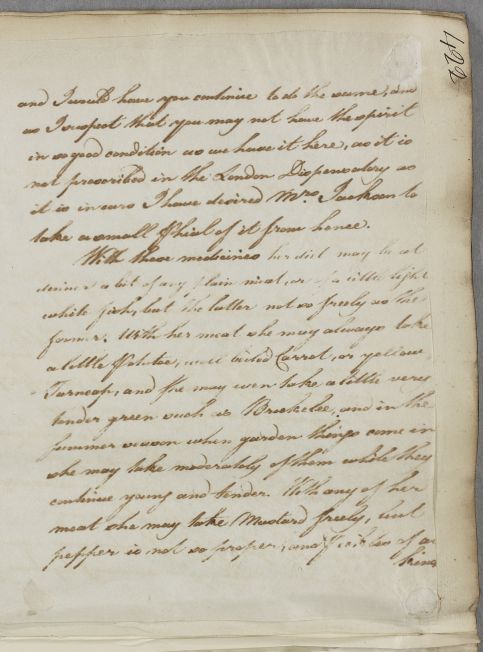 422
and I would have you continue to do the same, and
as I suspect that you may not have the spirit
in so good condition as we have it here, as it is
not prescribed in the London Dispensatory as
it is in ours I have desired Mrs. Jackson to
take a small Phial of it from hence.
With these medicines her diet may be at
dinner a bit of any plain meat, or of a little light
white fish, but the latter not so freely as the
former. With her meat she may always take
a little Potatoe, well boil'd Carrot, or yellow
Turneap, and she may even take a little very
tender green such as Brockelie, and in the
Summer season when garden things come in
she may take moderately of them while they
continue young and tender. With any of her
meat she may take Mustard freely, but
pepper is not so proper, and of a
kind